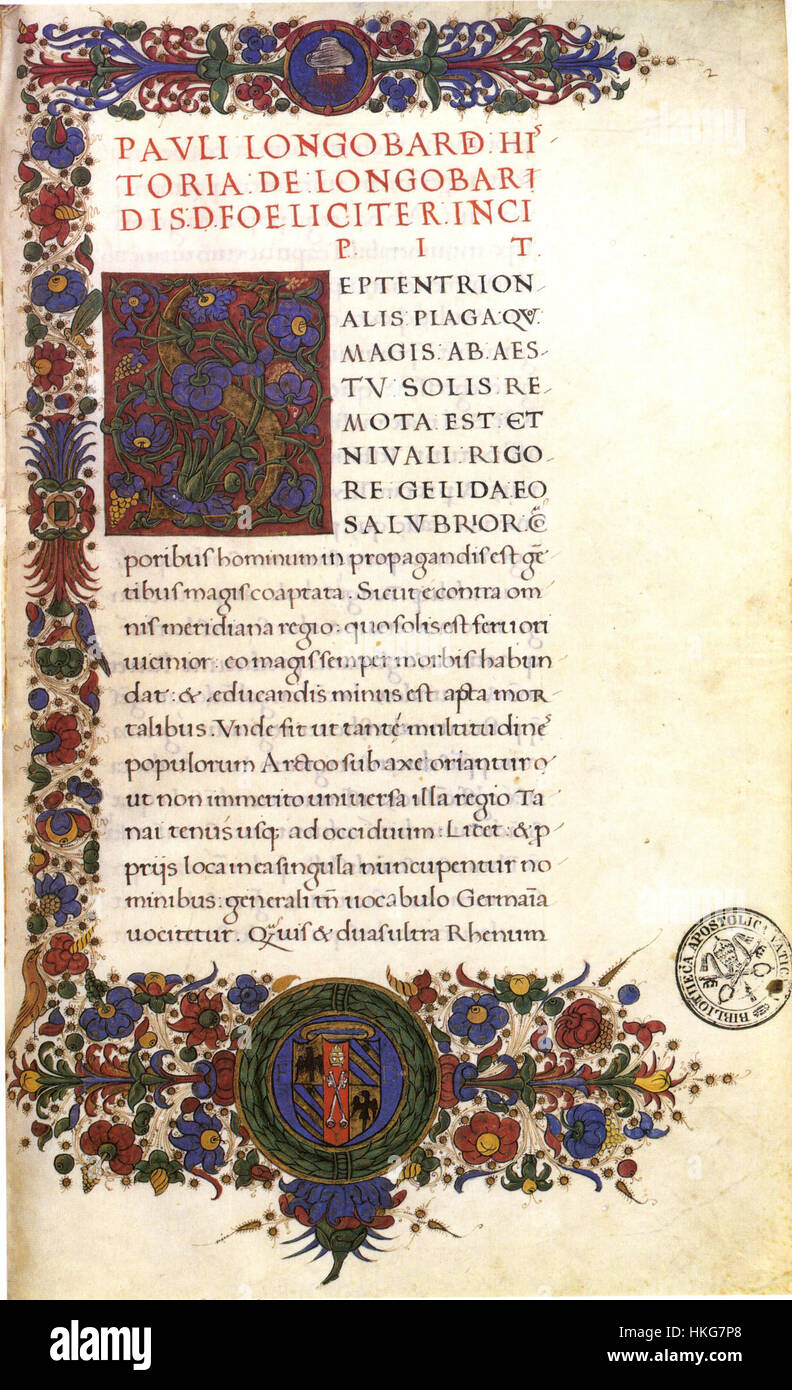 2
PAVLI LONGOBARDI: HIS
TORIA: DE LONGOBARI
DIS.D.FOELICITER.INCI
P I T.
SEPTENTRION
ALIS PLAGA QV.
MAGIS: AB. AES-
TV SOLIS RE
MOTA EST ET
NIVALI: RIGO
RE GELIDA EO
SALVBRIOR CŌ
poribus hominum in propagandis est gē
tibus magis coaptata. Sicut e contra om
nis meridiana regio: quo solis est feruori
uicinior: eo magis semper morbis habun
dat: &. educandis minus est apta mor
talibus. Vnde fit ut tantę multitudines
populorum Arctoo sub axe oriantur
ut non immerito universa illa regio Ta
nai tenus usq; ad occiduum: Licet: & p
prijs loca in ea singula nuncupentur no
minibus: generali tn̄ uocabulo Germāia
uocitetur. Q̃uis & duas ultra Rhenum
BIBLIOTHECA APOSTOLICA VATIC
alamy
Image ID: HKG7P8
www.alamy.com